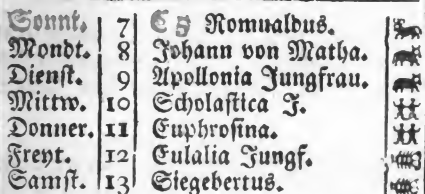 Sonnt. 7 C 5 Romualdus.
Mondt. 8 Johann von Matha.
Dienst. 9 Apollonia Jungfrau.
Mittw. 10 Scholastica J.
Donner. 11 Euphrosina.
Freyt. 12 Eulalia Jungf.
Samst. 13 Siegebertus.